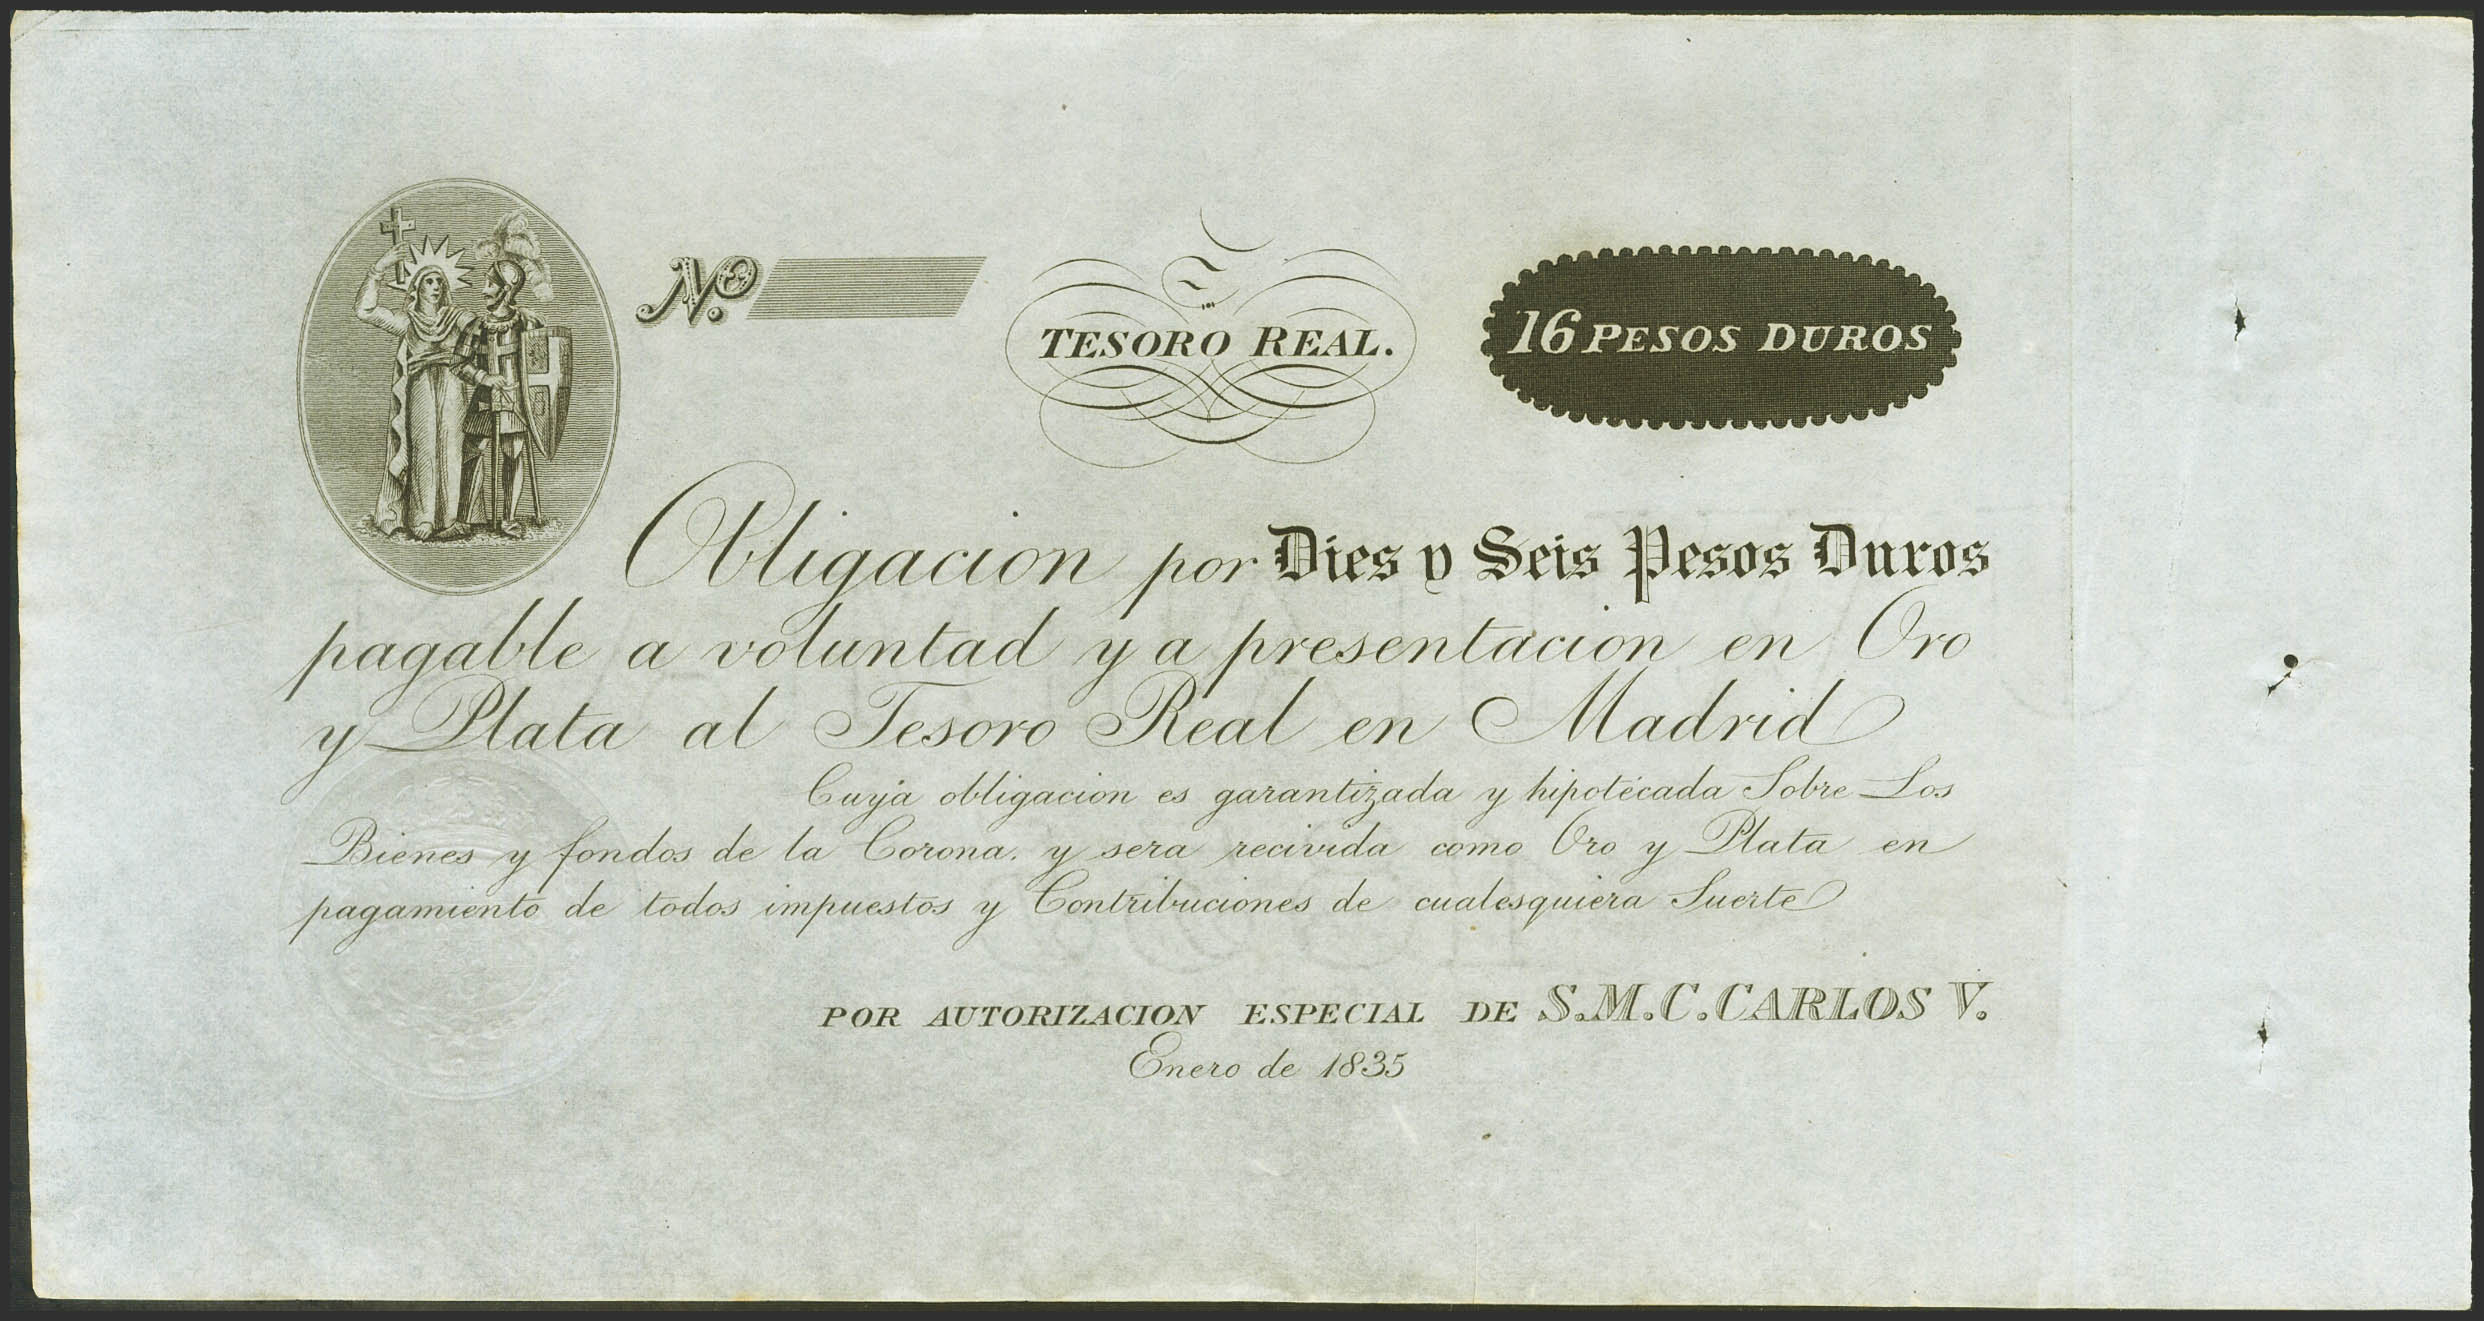 Nº
TESORO REAL.
16 PESOS DUROS
Obligacion por Dies y Seis Pesos Duros
pagable a voluntad y a presentacion en Oro
y Plata al Tesoro Real en Madrid
Cuya obligacion es garantizada y hipotécada Sobre Los
Bienes y fondos de la Corona. y sera recivida como Oro y Plata en
pagamiento de todos impuestos y Contribuciones de cualesquiera Suerte
POR AUTORIZACION ESPECIAL DE S.M.C. CARLOS V.
Enero de 1835